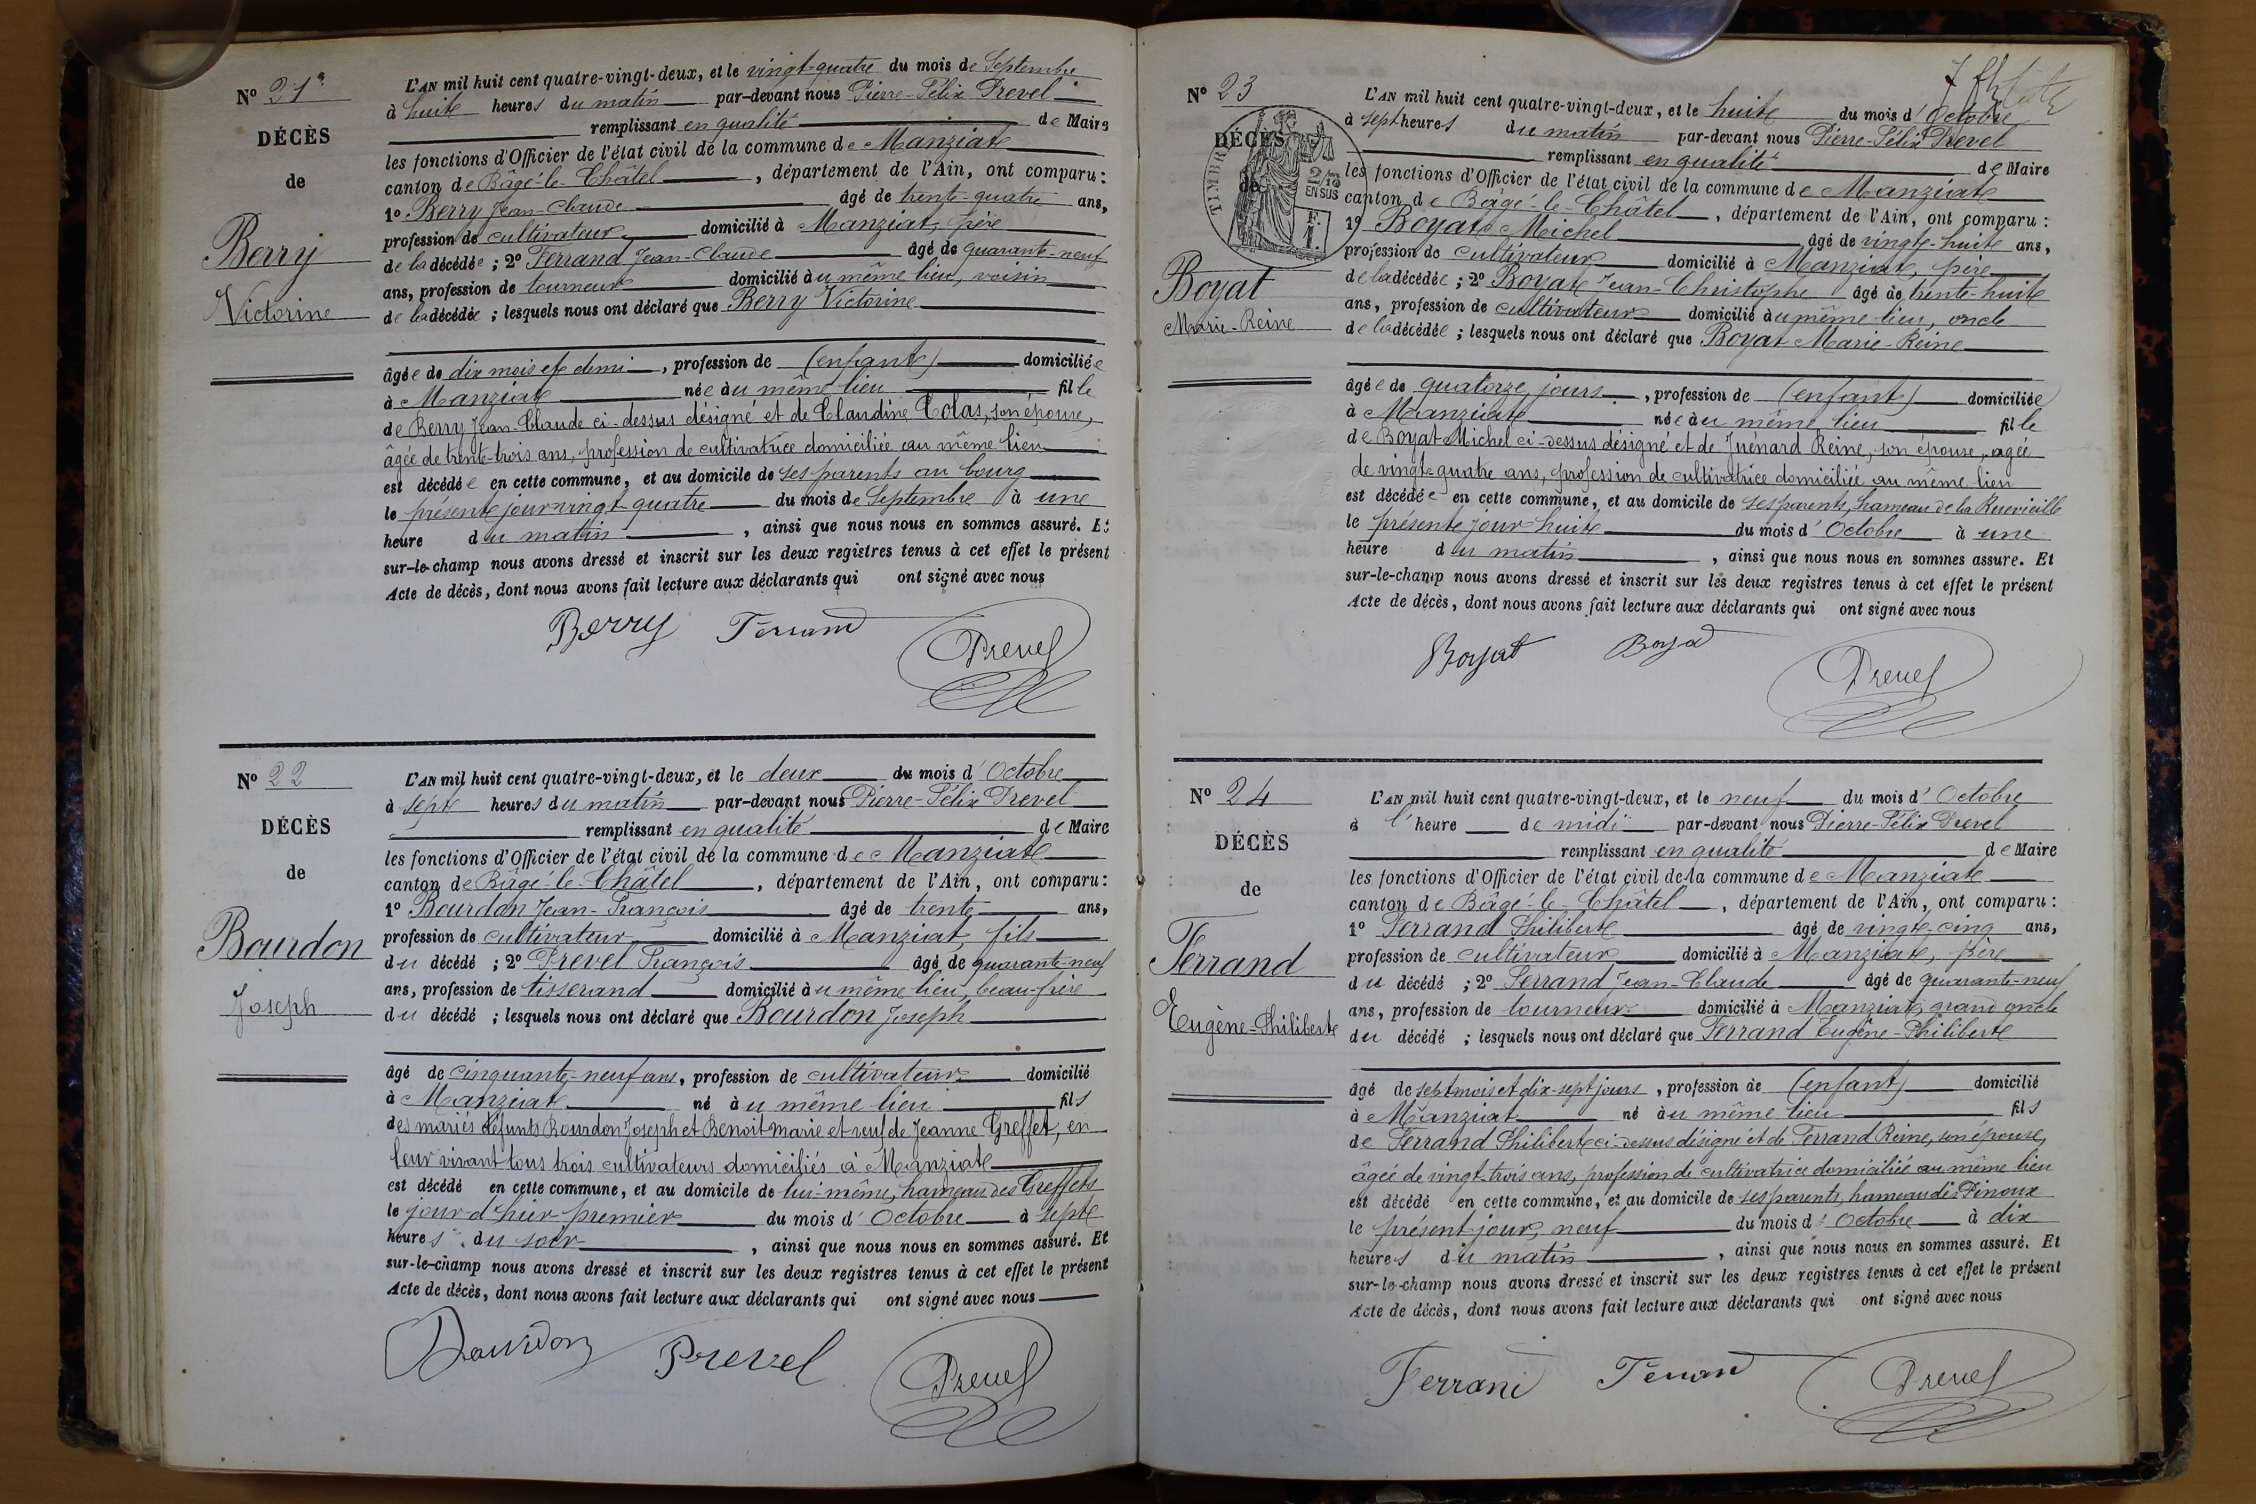 Nº 21
DÉCÈS
de
Berry
Victorine
L'AN mil huit cent quatre-vingt-deux, et le vingt-quatre du mois de Septembre
à huit heures du matin par-devant nous Pierre-Félix Prevel
remplissant en qualité de Maire
les fonctions d'Officier de l'état civil de la commune de Manziat
canton de Bâgé-le-Châtel, département de l'Ain, ont comparu:
1º Berry Jean-Claude âgé de trente-quatre ans,
profession de cultivateur domicilié à Manziat, père
de la décédée ; 2º Ferrand Jean-Claude âgé de quarante-neuf
ans, profession de tourneur domicilié au même lieu, voisin
de la décédée ; lesquels nous ont déclaré que Berry Victorine
âgée de dix mois et demi, profession de (enfant) domiciliée
à Manziat née au même lieu fille
de Berry Jean-Claude ci-dessus désigné et de Claudine Colas, son épouse,
âgée de trente-trois ans, profession de cultivatrice domiciliée au même lieu
est décédée en cette commune, et au domicile de ses parents au bourg
le présent jour vingt-quatre du mois de Septembre à une
heure du matin, ainsi que nous nous en sommes assuré. Et
sur-le-champ nous avons dressé et inscrit sur les deux registres tenus à cet effet le présent
Acte de décès, dont nous avons fait lecture aux déclarants qui ont signé avec nous
Berry Ferrand
Prevel
Nº 22
DÉCÈS
de
Bourdon
Joseph
L'AN mil huit cent quatre-vingt-deux, et le deux du mois d'Octobre
à sept heures du matin par-devant nous Pierre-Félix Prevel
remplissant en qualité de Maire
les fonctions d'Officier de l'état civil de la commune de Manziat
canton de Bâgé-le-Châtel, département de l'Ain, ont comparu:
1º Bourdon Jean-François âgé de trente ans,
profession de cultivateur domicilié à Manziat, fils
du décédé ; 2º Prevel François âgé de quarante-neuf
ans, profession de tisserand domicilié au même lieu, beau-frère
du décédé ; lesquels nous ont déclaré que Bourdon Joseph
âgé de cinquante-neuf ans, profession de cultivateur domicilié
à Manziat né au même lieu fils
des mariés défunts Bourdon Joseph et Benoit Marie et veuf de Jeanne Greffet, en
leur vivant tous trois cultivateurs domiciliés à Manziat
est décédé en cette commune, et au domicile de lui-même, hameau des Greffets
le jour d'hier premier du mois d'Octobre à sept
heures du soir, ainsi que nous nous en sommes assuré. Et
sur-le-champ nous avons dressé et inscrit sur les deux registres tenus à cet effet le présent
Acte de décès, dont nous avons fait lecture aux déclarants qui ont signé avec nous
Bourdon Prevel
Prevel
Nº 23
DÉCÈS
de
TIMBRE
2/10
EN SUS
Boyat
Marie-Reine
L'AN mil huit cent quatre-vingt-deux, et le huit du mois d'Octobre
à sept heures du matin par-devant nous Pierre-Félix Prevel
remplissant en qualité de Maire
les fonctions d'Officier de l'état civil de la commune de Manziat
canton de Bâgé-le-Châtel, département de l'Ain, ont comparu :
1º Boyat Michel âgé de vingt-huit ans,
profession de cultivateur domicilié à Manziat, père
de la décédée ; 2º Boyat Jean-Christophe âgé de trente-huit
ans, profession de cultivateur domicilié au même lieu, oncle
de la décédée ; lesquels nous ont déclaré que Boyat Marie-Reine
âgée de quatorze jours, profession de (enfant) domiciliée
à Manziat née au même lieu fille
de Boyat Michel ci-dessus désigné et de Juénard Reine, son épouse, agée
de vingt-quatre ans, profession de cultivatrice domiciliée au même lieu
est décédée en cette commune, et au domicile de ses parents, hameau de la
le présent jour huit du mois d'Octobre à une
heure du matin, ainsi que nous nous en sommes assuré. Et
sur-le-champ nous avons dressé et inscrit sur les deux registres tenus à cet effet le présent
Acte de décès, dont nous avons fait lecture aux déclarants qui ont signé avec nous
Boyat Boya
Prevel
Nº 24
DÉCÈS
de
Ferrand
Eugène-Philibert
L'AN mil huit cent quatre-vingt-deux, et le neuf du mois d'Octobre
à l'heure de midi par-devant nous Pierre-Félix Prevel
remplissant en qualité de Maire
les fonctions d'Officier de l'état civil de la commune de Manziat
canton de Bâgé-le-Châtel, département de l'Ain, ont comparu :
1º Ferrand Philibert âgé de vingt-cinq ans,
profession de cultivateur domicilié à Manziat, père
du décédé ; 2º Ferrand Jean-Claude âgé de quarante-neuf
ans, profession de tourneur domicilié à Manziat, grand oncle
du décédé ; lesquels nous ont déclaré que Ferrand Eugène-Philibert
âgé de sept mois et dix-sept jours, profession de (enfant) domicilié
à Manziat né au même lieu fils
de Ferrand Philibert ci-dessus désigné et de Ferrand Reine, son épouse,
âgée de vingt-trois ans, profession de cultivatrice domiciliée au même lieu
est décédé en cette commune, et au domicile de ses parents, hameau des Pinoux
le présent jour, neuf du mois d'Octobre à dix
heures du matin, ainsi que nous nous en sommes assuré. Et
sur-le-champ nous avons dressé et inscrit sur les deux registres tenus à cet effet le présent
Acte de décès, dont nous avons fait lecture aux déclarants qui ont signé avec nous
Ferrand Ferrand
Prevel